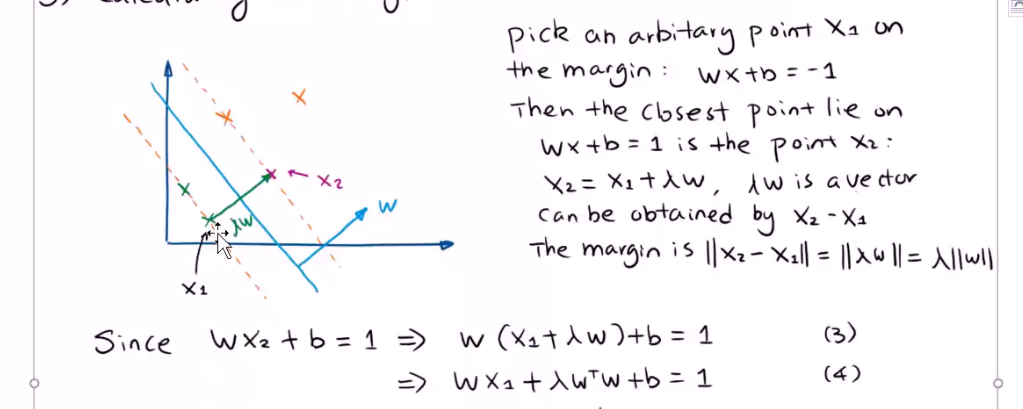 pick an arbitary point X1 on
the margin: wx+b = -1
Then the closest point lie on
wx+b = 1 is the point X2:
X2 = X1 + λw, λw is a vector
can be obtained by X2 - X1
The margin is ||X2 - X1|| = ||λw|| = λ||w||
X2
w
λw
X1
Since wX2 + b = 1 => w (X1 + λw) + b = 1 (3)
=> wX1 + λwᵀw + b = 1 (4)